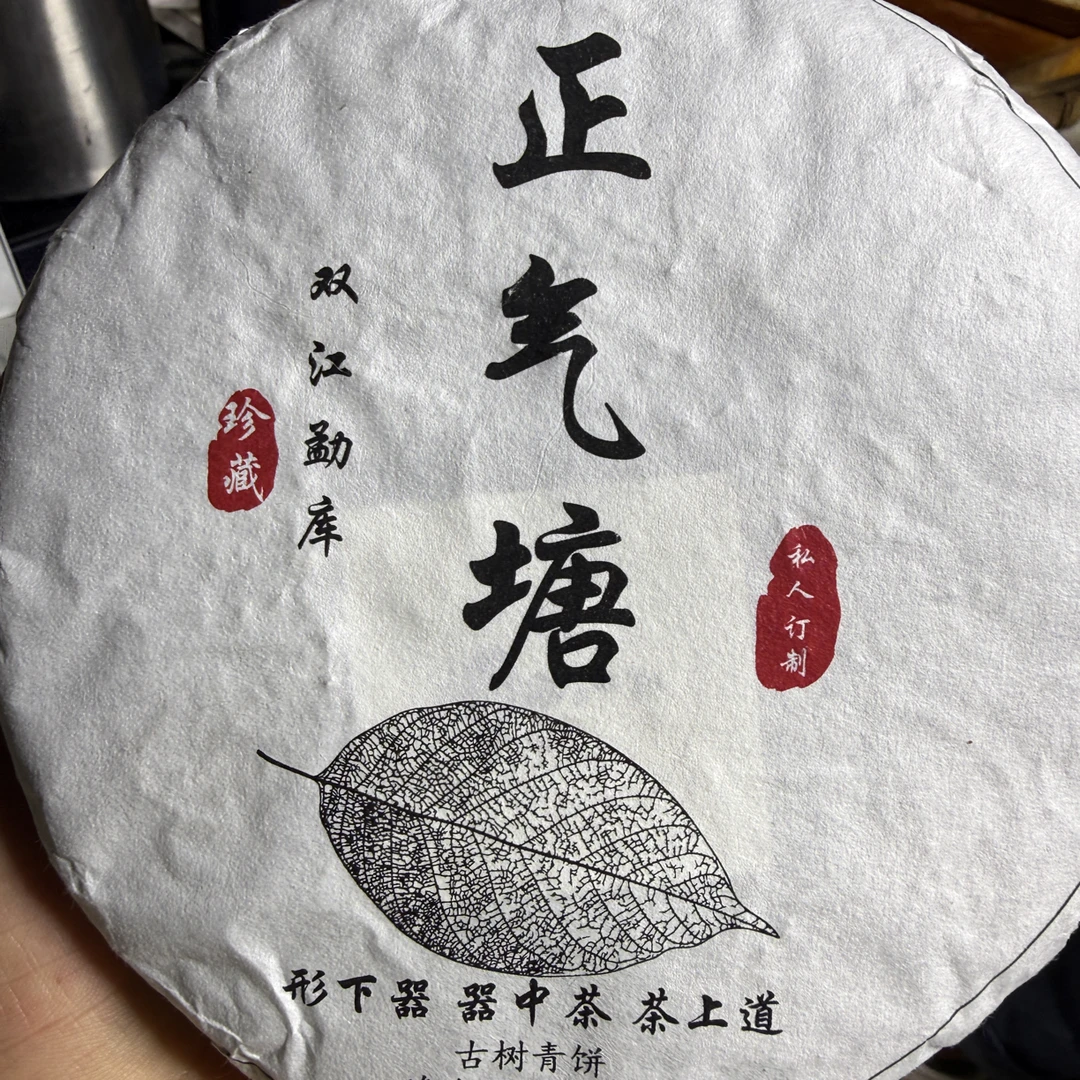 正气塘
双江勐库
珍藏
私人订制
形下器 器中茶 茶上道
古树青饼